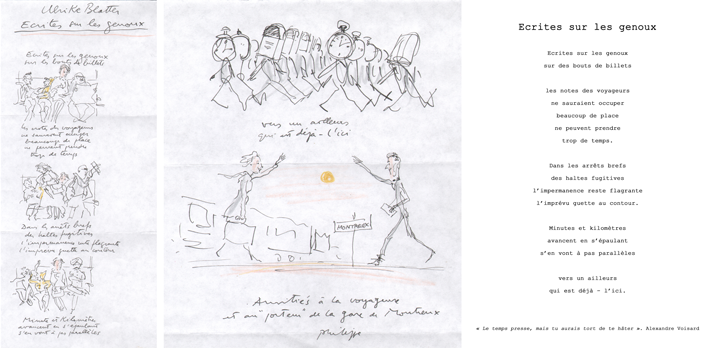 Ulrike Blatter
Ecrites sur les genoux
Ecrites sur les genoux
sur les bouts de billets
les notes des voyageurs
ne sauraient occuper
beaucoup de place
ne peuvent prendre
trop de temps
Dans les arrêts brefs
des haltes fugitives
l'impermanence reste flagrante
l'imprévu guette au contour
Minutes et Kilomètres
avancent en s'épaulant
s'en vont à pas parallèles
vers un ailleurs
qui est déjà - l'ici
MONTREUX
Amitiés à la voyageuse
et au "porteur" de la gare de Montreux
philippe
Ecrites sur les genoux
Ecrites sur les genoux
sur des bouts de billets
les notes des voyageurs
ne sauraient occuper
beaucoup de place
ne peuvent prendre
trop de temps.
Dans les arrêts brefs
des haltes fugitives
l'impermanence reste flagrante
l'imprévu guette au contour.
Minutes et kilomètres
avancent en s'épaulant
s'en vont à pas parallèles
vers un ailleurs
qui est déjà - l'ici.
« Le temps presse, mais tu aurais tort de te hâter ». Alexandre Voisard